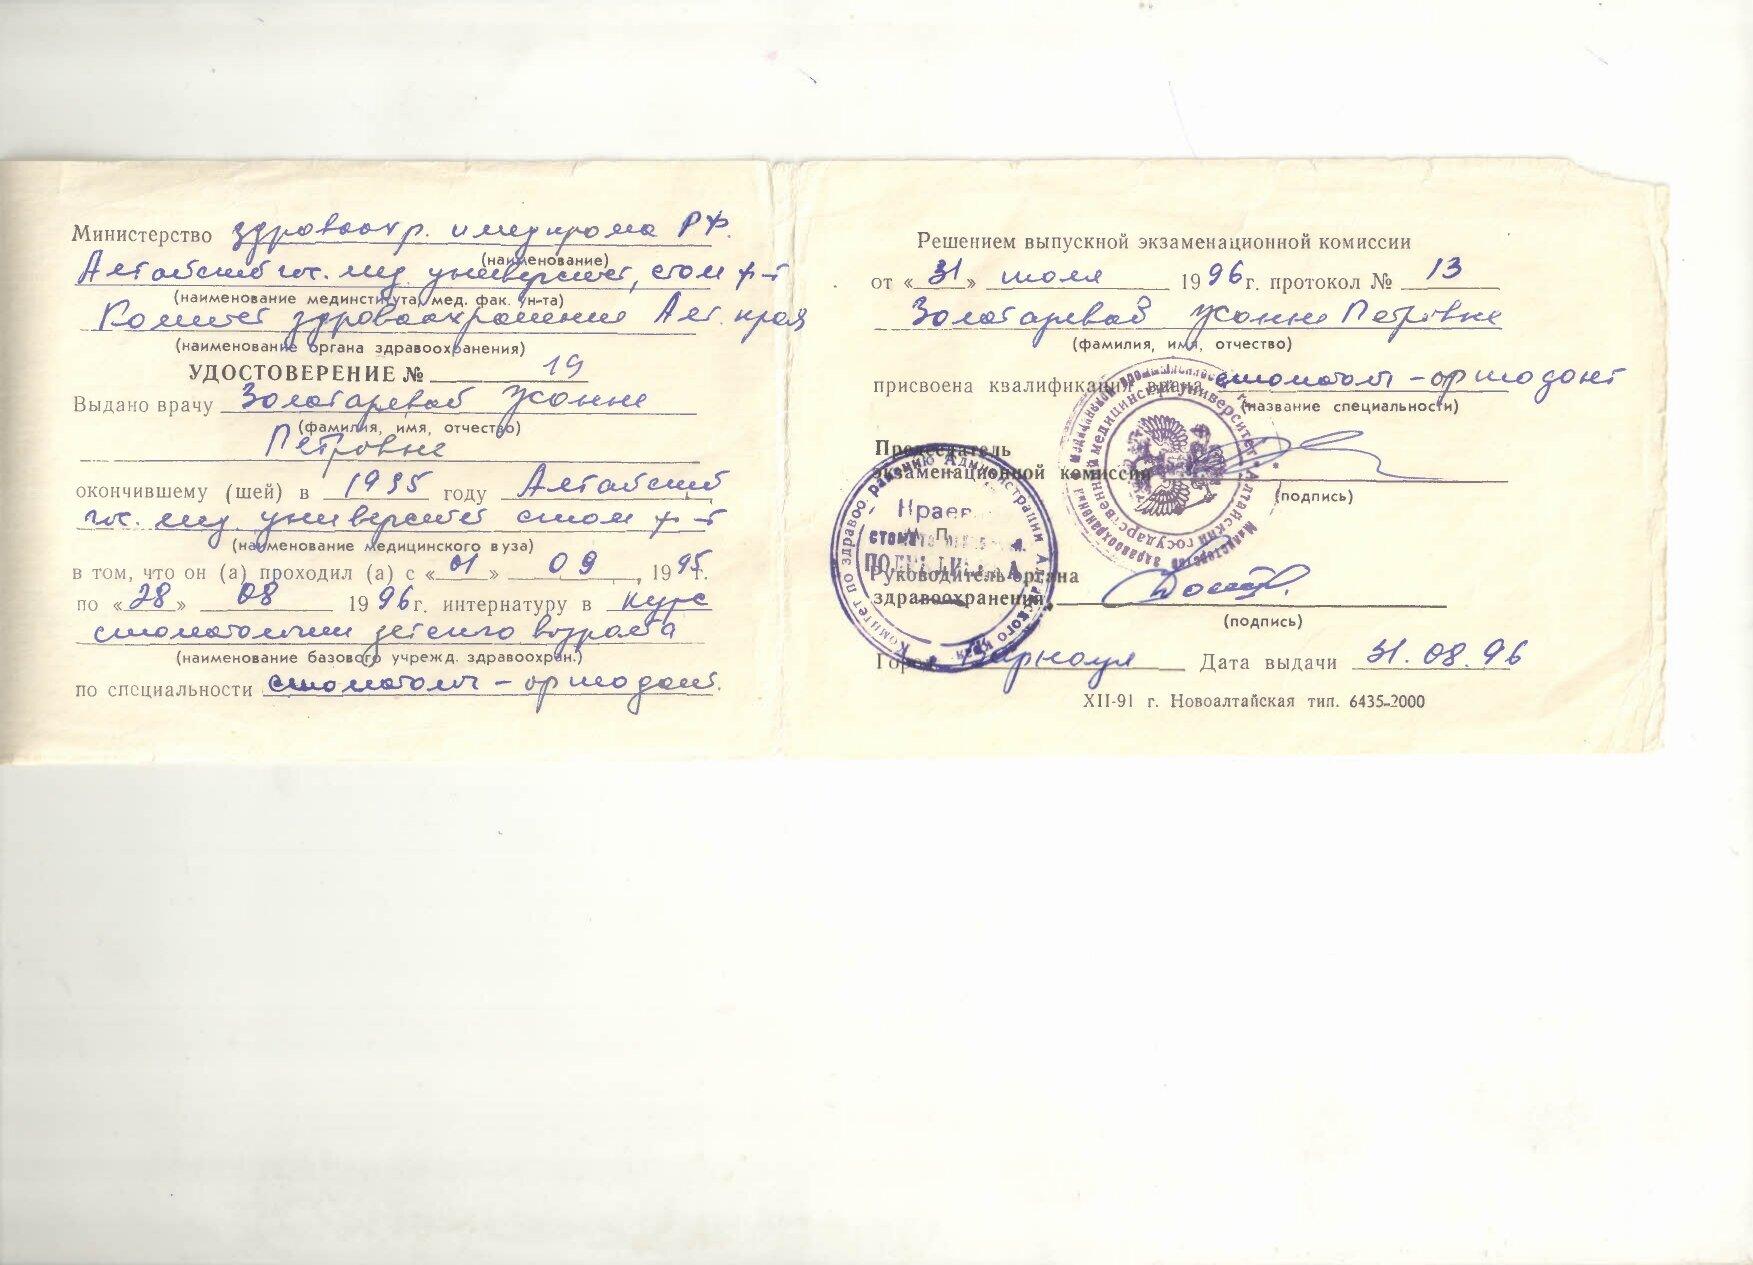 Министерство здравоохр. и медпрома РФ.
(наименование)
Алтайский гос. мед. университет, стом ф-т
(наименование мединститута, мед. фак. ун-та)
Комитет здравоохранения Алт. края
(наименование органа здравоохранения)
УДОСТОВЕРЕНИЕ № 19
Выдано врачу Золотаревой Жанне
(фамилия, имя, отчество)
Петровне
окончившему (шей) в 1995 году Алтайский
гос. мед. университет стом ф-т
(наименование медицинского вуза)
в том, что он (а) проходил (а) с «01» 09, 1995г.
по «28» 08 1996г. интернатуру в курс
стоматологии детского возраста
(наименование базового учрежд. здравоохран.)
по специальности стоматолог-ортодонт.
Решением выпускной экзаменационной комиссии
от «31» июля 1996г. протокол № 13
Золотаревой Жанне Петровне
(фамилия, имя, отчество)
присвоена квалификация врача стоматолог-ортодонт
(название специальности)
Председатель
экзаменационной комиссии
(подпись)
М. П.
Руководитель органа
здравоохранения
(подпись)
Город Барнаул Дата выдачи 31.08.96
XII-91 г. Новоалтайская тип. 6435-2000
Министерство здравоохранения и медицинской промышленности
Алтайский государственный медицинский университет
Комитет по здравоохранению Администрации Алтайского края